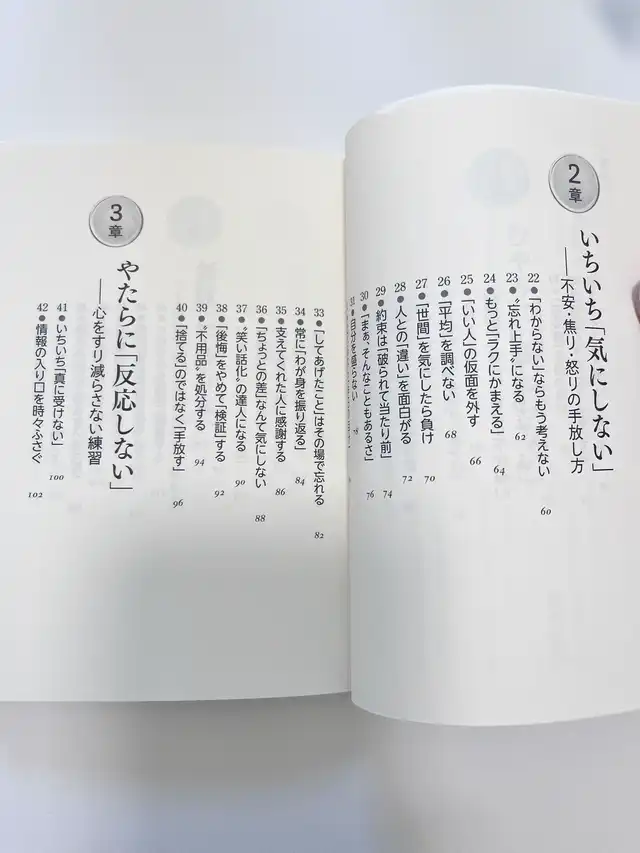 2章
いちいち「気にしない」
――不安・焦り・怒りの手放し方
22 ●「わからない」ならもう考えない 60
23 ●〝忘れ上手〟になる 62
24 ●もっと「ラクにかまえる」 64
25 ●「いい人」の仮面を外す 66
26 ●「平均」を調べない 68
27 ●「世間」を気にしたら負け 70
28 ●人との「違い」を面白がる 72
29 ●約束は「破られて当たり前」 74
30 ●「まぁ、そんなこともあるさ」 76
31 ●自分を 78
33 ●「してあげたこと」はその場で忘れる 82
34 ●常に「わが身を振り返る」 84
35 ●支えてくれた人に感謝する 86
36 ●「ちょっとの差」なんて気にしない 88
37 ●〝笑い話化〟の達人になる 90
38 ●「後悔」をやめて「検証」する 92
39 ●〝不用品〟を処分する 94
40 ●「捨てる」のではなく「手放す」 96
3章
やたらに「反応しない」
――心をすり減らさない練習
41 ●いちいち「真に受けない」 100
42 ●情報の入り口を時々ふさぐ 102